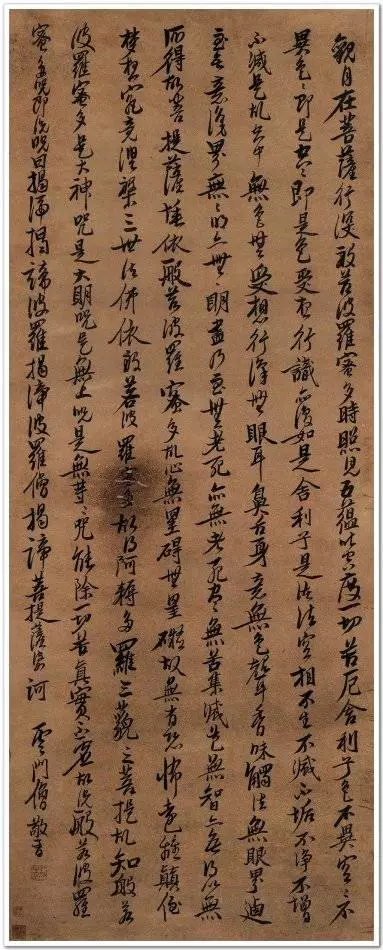 觀自在菩薩行深般若波羅蜜多時照見五蘊皆空度一切苦厄舍利子色不異空〻不
異色〻即是空〻即是色受想行識亦復如是舍利子是諸法空相不生不滅不垢不淨不增
不減是故空中無色無受想行識無眼耳鼻舌身意無色聲香味觸法無眼界迺
至無意識界無〻明亦無〻明盡乃至無老死亦無老死盡無苦集滅道無智亦無得以無
所得故菩提薩埵依般若波羅蜜多故心無罣礙無罣礙故無有恐怖遠離顛倒
夢想究竟涅槃三世諸佛依般若波羅蜜多故得阿耨多羅三藐三菩提故知般若
波羅蜜多是大神咒是大明咒是無上咒是無等〻咒能除一切苦真實不虛故說般若波羅
蜜多咒即說咒曰揭諦揭諦波羅揭諦波羅僧揭諦菩提薩婆訶 雲門僧敬書